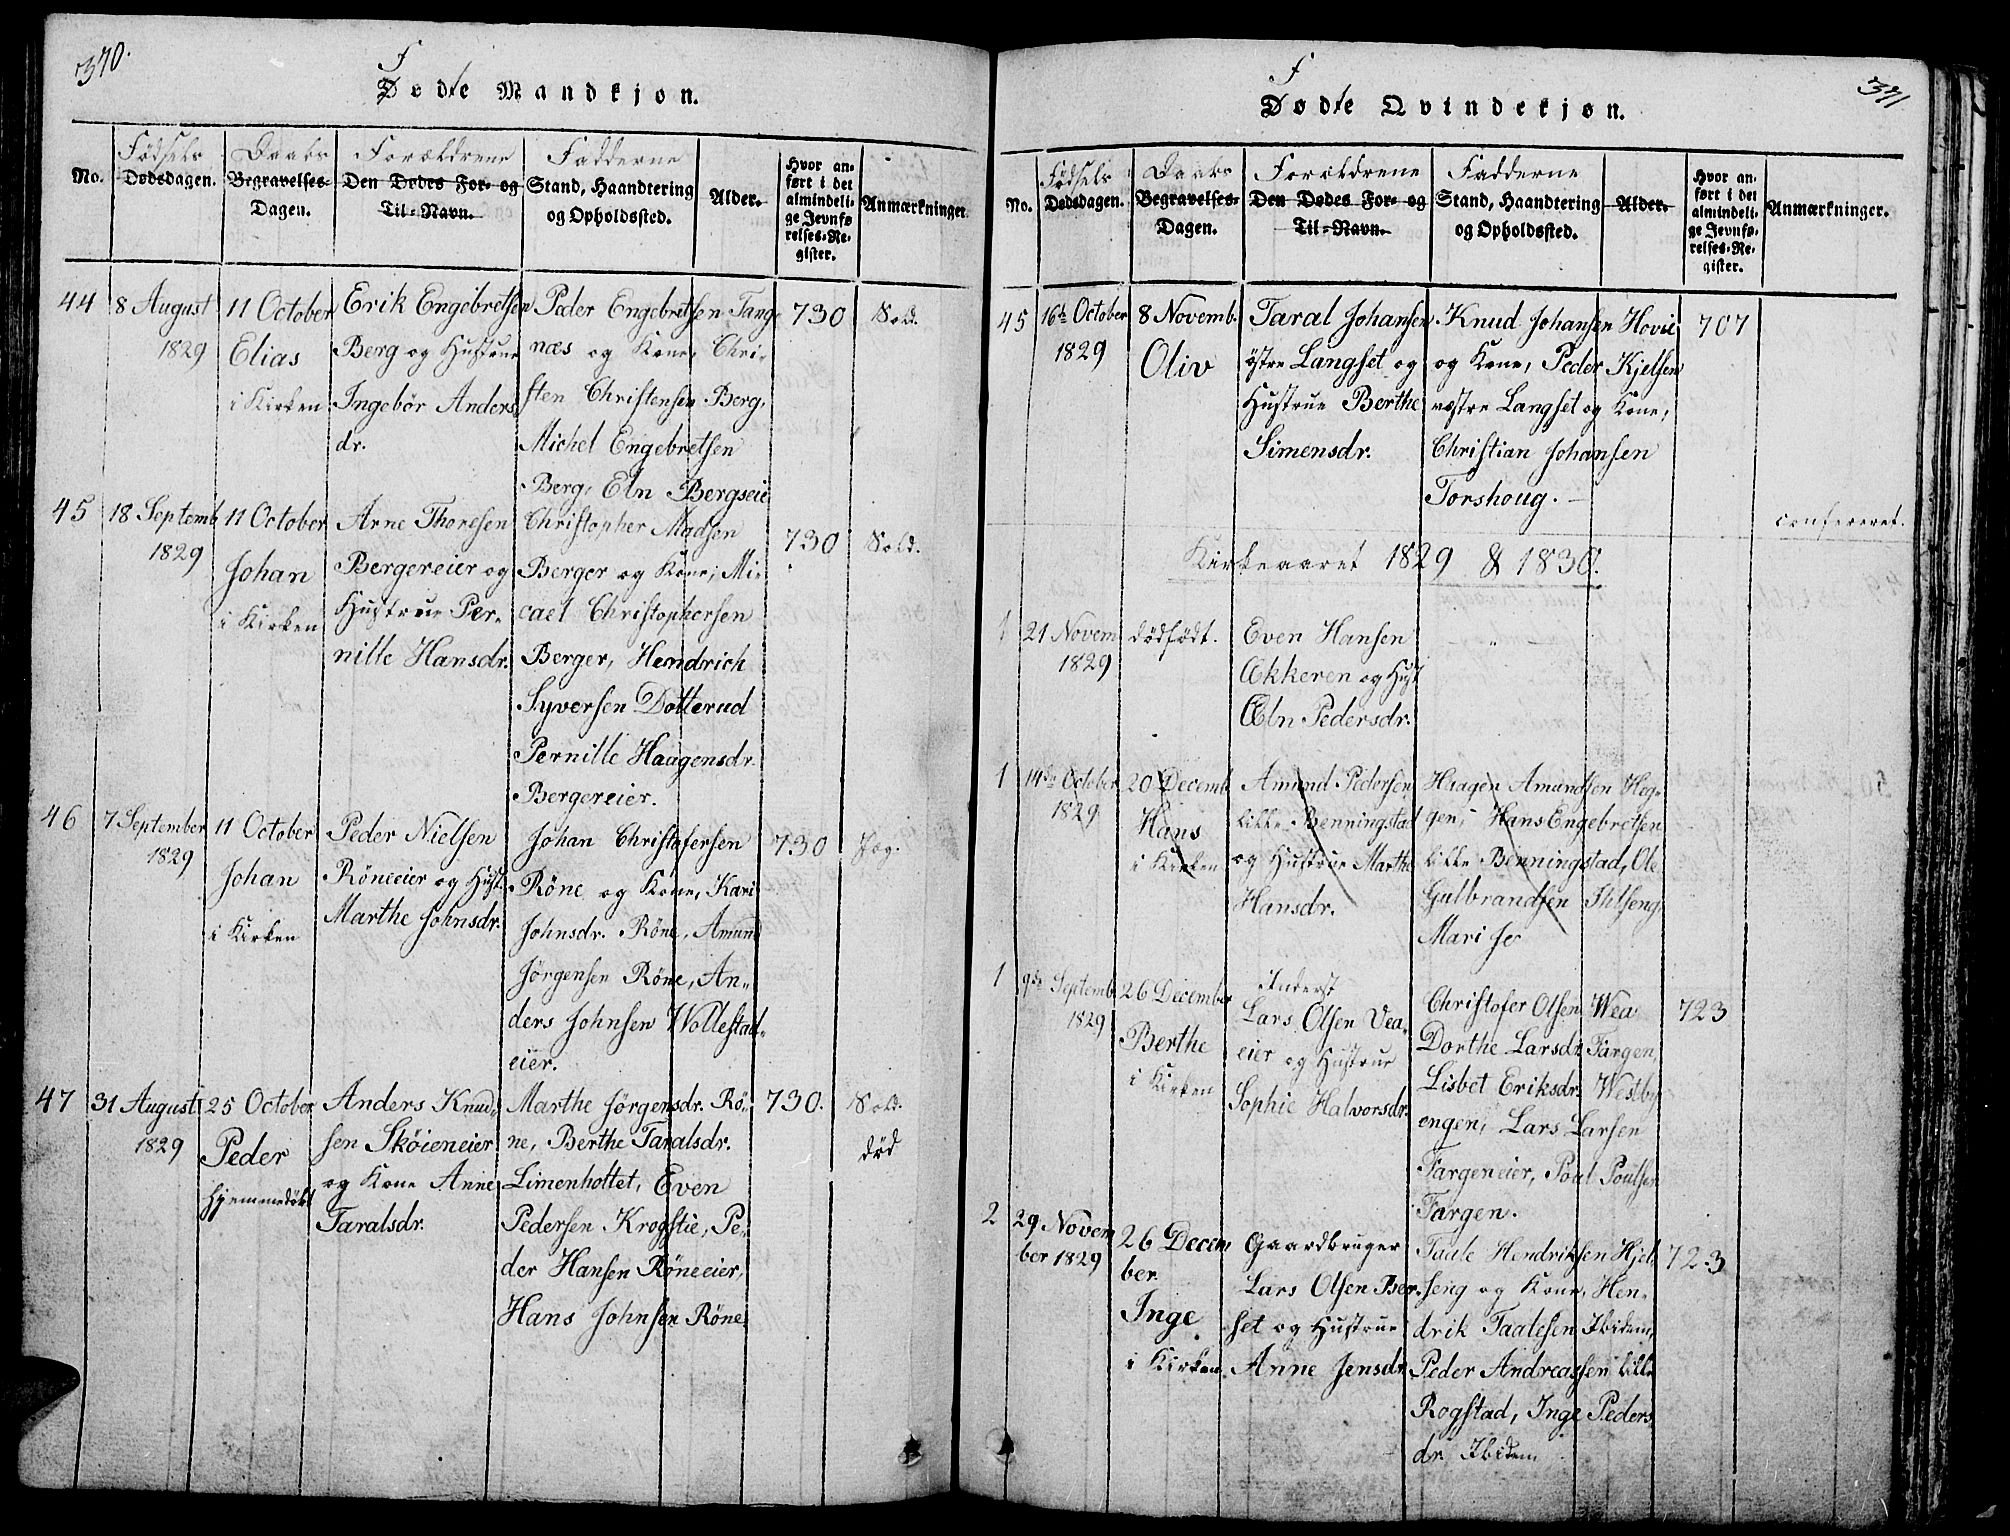 370.
F
Dødte Mandkjøn.
Fødsels
Daabs
Forældrene
Fadderne
No.
Dødsdagen.
Begravelses-
Dagen.
Den Dødes For- og
Til-Navn.
Stand, Haandtering
og Opholdssted.
Alder.
Hvor an-
ført i det
almindeli-
ge Jevnfø
relses-Re-
gister.
Anmærkninger.
44
8 August
1829
11 October
Elias
i Kirken
Erik Engebretsen
Berg og Hustrue
Ingebör Anders
dr.
Peder Engebretsen Tang-
næs og Kone, Chri-
sten Christensen Berg,
Michel Engebretsen
Berg, Eln Bergseie
730
Sold.
45
18 Septemb
1829
11 October
Johan
i Kirken
Arne Thoresen
Bergereier og
Hustrue Per-
nille Hansdr.
Christopher Madsen
Berger og Kone, Mi-
cael Christophersen
Berger, Hendrich
Syversen Dotterud
Pernille Haagensdr.
Bergereier.
730
Sold.
46
7 September
1829
11 October
Johan
i Kirken
Peder Nielsen
Röneeier og Hust.
Marthe Johnsdr.
Johan Christofersen
Röne og Kone, Kari
Johnsdr. Röne, Amund
Jörgensen Röne, An-
ders Johnsen Wollestad-
eier.
730
47
31 August
1829
25 October
Peder
hjemmedöbt
Anders Knud-
sen Sköieneier
og Kone Anne
Taralsdr.
Marthe Jörgensdr. Rö-
ne, Berthe Taralsdr.
Limenhottet, Even
Pedersen Krogstie, Pe-
der Hansen Röneeier,
Hans Johnsen Röne
730.
Sold.
død
371
F
Dødte Qvindekjøn.
Fødsels
Daabs
Forældrene
Fadderne
No.
Dødsdagen.
Begravelses-
Dagen.
Den Dødes For- og
Til-Navn.
Stand, Haandtering
og Opholdssted.
Alder.
Hvor an-
ført i det
almindeli-
ge Jevnfø-
relses-Re-
gister.
Anmærkninger.
45
16de October
1829
8 Novemb.
Oliv
Taral Johansen
östre Langset og
Hustrue Berthe
Simensdr.
Knud Johansen Hovie
og Kone, Peder Kjelsen
væstre Langset og Kone,
Christian Johansen
Torshoug. —
707
confereret.
Kirkeaaret 1829 & 1830.
1
21 Novem
1829
dödfödt.
Even Hansen
Økkeren og Hust
Eln Pedersdr.
1
14de October
1829
20 Decemb
Hans
i Kirken
Amund Pedersen
lille Benningstad
og Hustrue Marthe
Hansdr.
Haagen Amundsen Hog-
gen, Hans Engebretsen
lille Benningstad, Ole
Gulbrandsen Ihlseng,
Mari Je
1
9de Septemb
1829
26 December
Berthe
i Kirken
Inderst
Lars Olsen Vea-
eier og Hustrue
Sophie Halvorsdr.
Christofer Olsen Wea
Dorthe Larsdr. Fargen,
Lisbet Eriksdr. Westby
engen, Lars Larsen
Fargeneier, Poul Poulsen
Fargen.
723
2
29 Novem
ber 1829
26 Decem
ber.
Inge
i Kirken
Gaardbruger
Lars Olsen Ber-
set og Hustrue
Anne Jensdr.
Taale Hendriksen Hjel-
seng og Kone, Hen-
drik Taalesen Ibidem,
Peder Andreassen lille
Rogstad, Inge Peders
dr. Ibidem
723